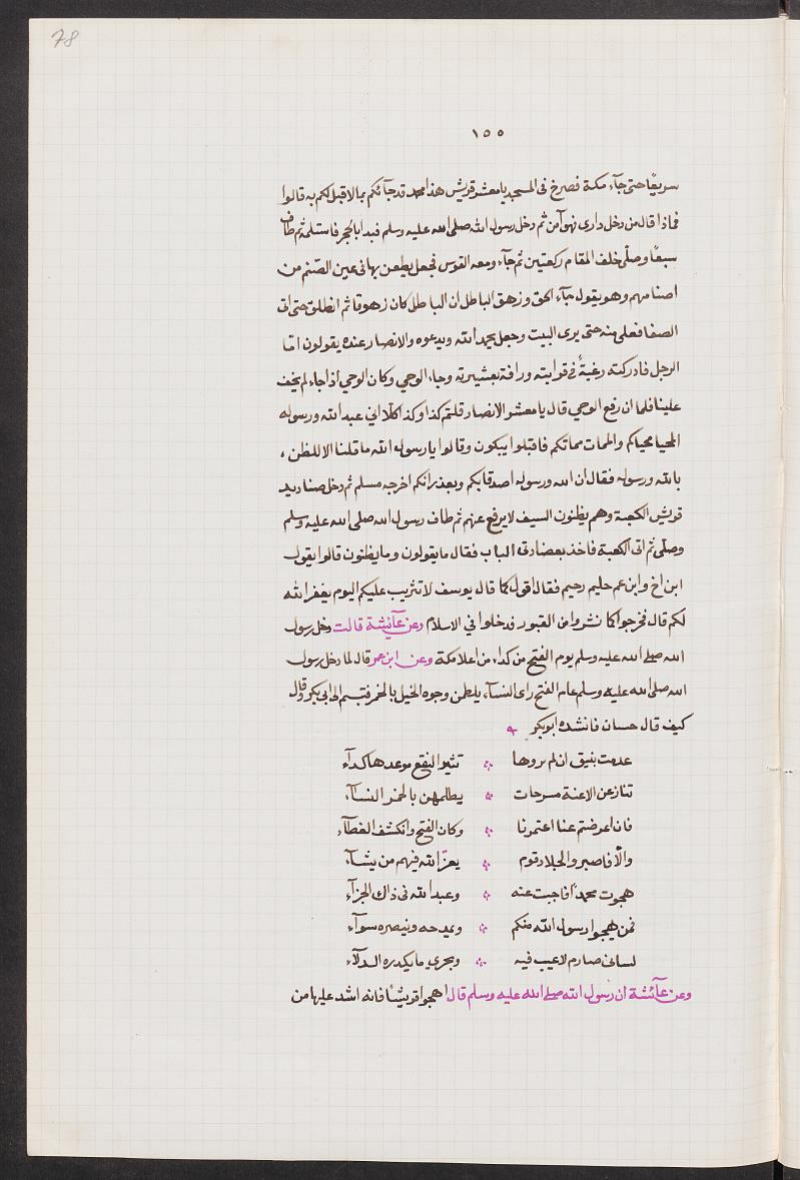 78
١٥٥
سريعًا حتى جآء مكة فصرخ فى المسجد يا معشر قريش هذا محمد قد جآئكم بما لا قبل لكم به قالوا
فماذا قال من دخل دارى فهو آمن ثم دخل رسول الله صلى الله عليه وسلم فبدا بالحجر فاستلمه ثم طاف
سبعًا وصلّى خلف المقام ركعتين ثم جآء ومعه القوس فجعل يطعن بها فى عين الصّنم من
اصنامهم وهو يقول جآء الحق وزهق الباطل ان الباطل كان زهوقا ثم انطلق حتى اتى
الصفا فعلى منه حتى يرى البيت وجعل يحمد الله ويدعوه والانصار عنده يقولون امّا
الرجل فادركته رغبةٌ فى قرابته ورافة بعشيرته وجاء الوحي وكان الوحي اذا جاء لم يخف
علينا فلما ان رفع الوحي قال يا معشر الانصار قلتم كذا وكذا كلّا اني عبد الله ورسوله
المحيا محياكم والممات مماتكم فاقبلوا يبكون وقالوا يا رسول الله ما قلنا الا للظن ،
بالله ورسوله فقال ان الله ورسوله اصدقابكم ويعذرانكم اخرجه مسلم ثم دخل صناديد
قريش الكعبة وهم يظنون السيف لا يرفع عنهم ثم طاف رسول الله صلى الله عليه وسلم
وصلّى ثم اتى الكعبة فاخذ بعضادتى الباب فقال ما يقولون وما يظنون قالوا يقول
ابن اخ وابن عم حليم رحيم فقال اقول كما قال يوسف لا تثريب عليكم اليوم يغفر الله
لكم قال فخرجوا كما نشروا من القبور فدخلوا في الاسلام وعن عآئشة قالت دخل رسول
الله صلى الله عليه وسلم يوم الفتح من كداء من اعلا مكة وعن ابن عمر قال لما دخل رسول
الله صلى الله عليه وسلم عام الفتح راى النسآء يلطمن وجوه الخيل بالخمر فتبسم الى ابى بكر وقال
كيف قال حسان فانشده ابو بكر
عدمت بنيق ان لم تروها ❖ تثير النقع موعدها كدآء
تنازعن الاعنة مسرجات ❖ يطلمهن بالخمر النسآء
فان اعرضتم عنا اعتمرنا ❖ وكان الفتح وانكشف الغطآء
والّا فاصبروا لجلاد قوم ❖ يعزّ الله فيهم من يشآء
هجوت محمدًا فاجبت عنه ❖ وعبد الله فى ذاك الجزآء
فمن يهجوا رسول الله منكم ❖ ويمدحه وينصره سوآء
لسانى صارم لا عيب فيه ❖ وبحرى ما يكدره الدلآء
وعن عآئشة ان رسول الله صلى الله عليه وسلم قال اهجوا قريشًا فانه اشد عليها من